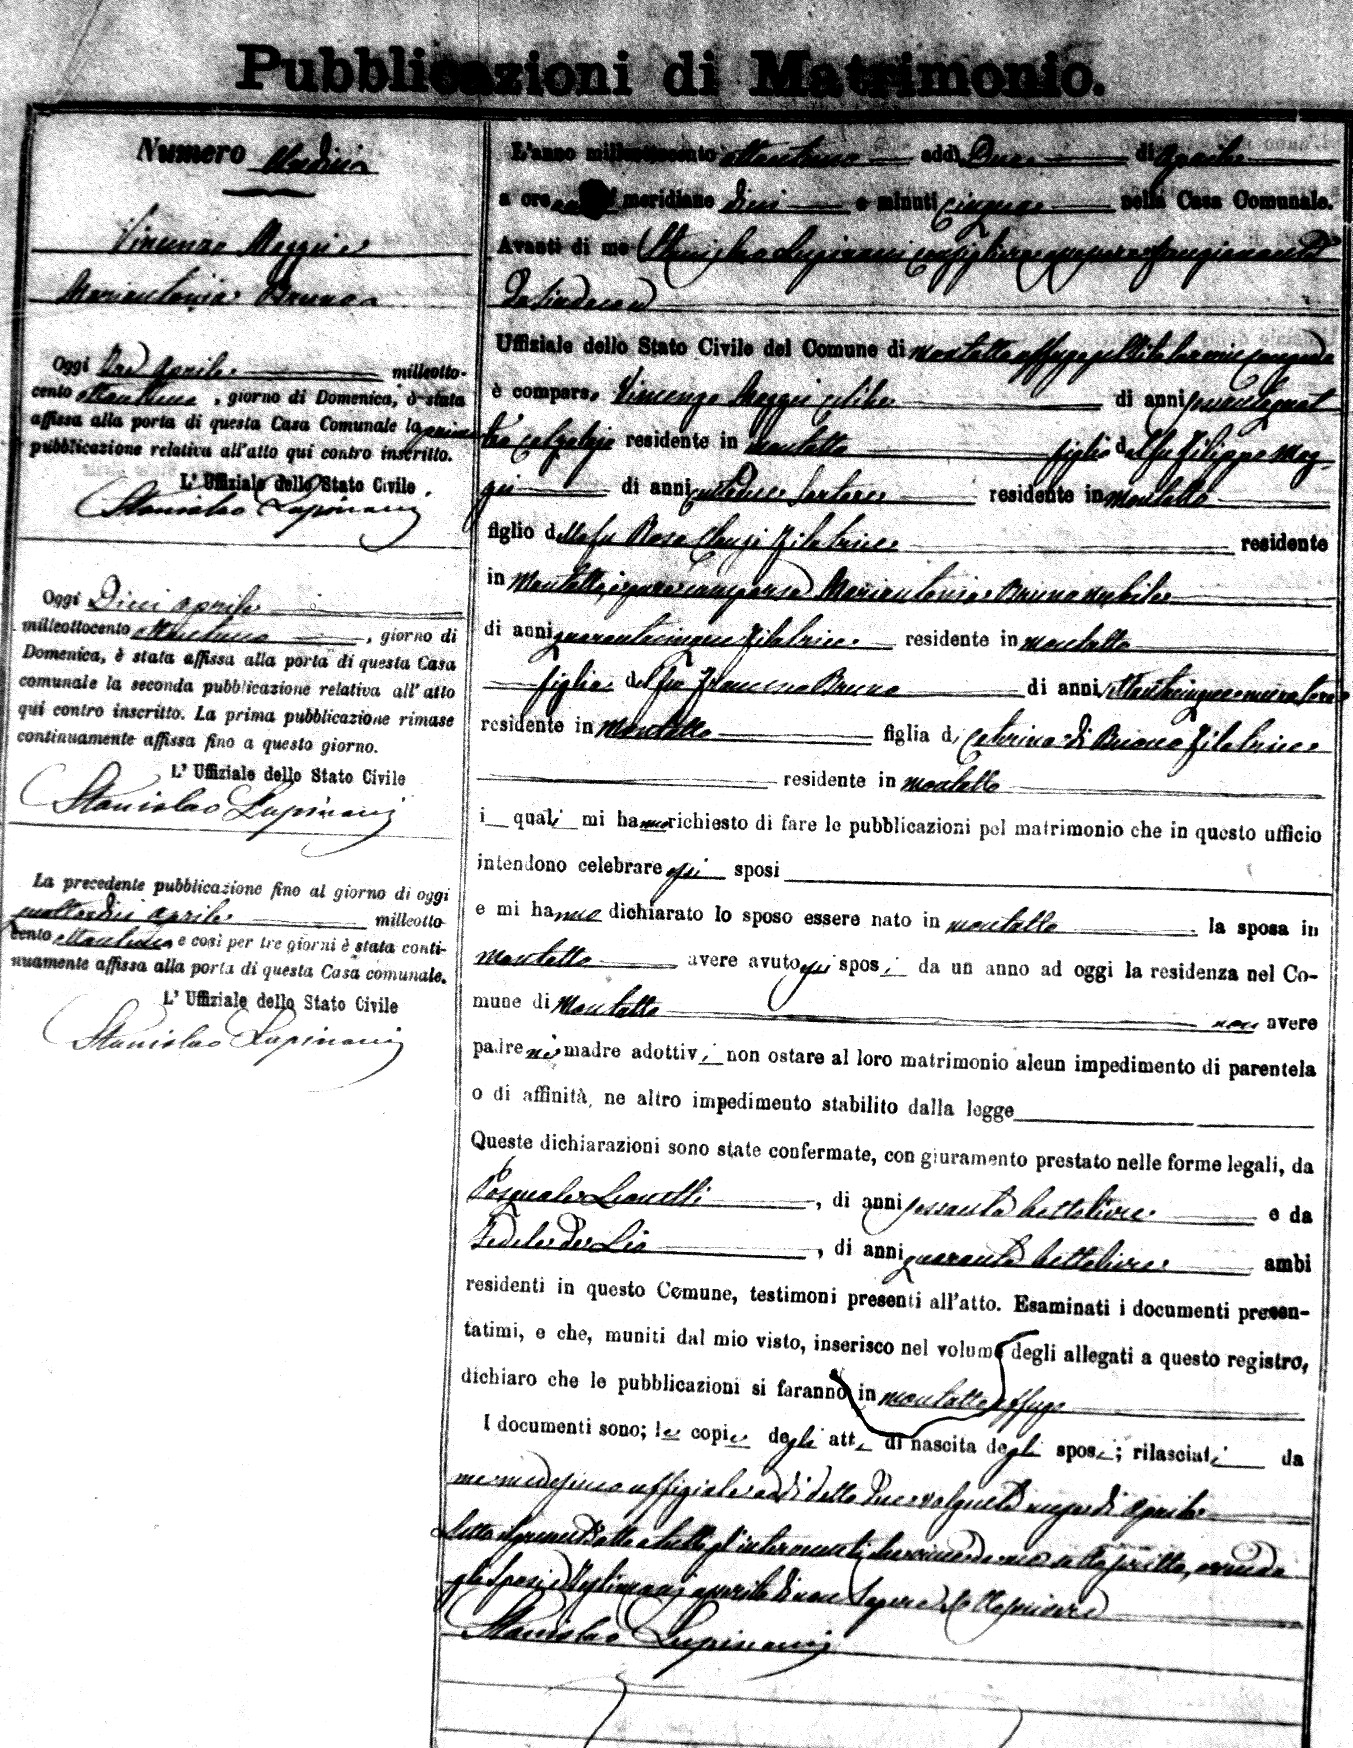 Pubblicazioni di Matrimonio.
Numero Undici
Vincenzo Maggi e
Mariantonia Bruno
Oggi Tre Aprile milleotto-
cento ottantuno, giorno di Domenica, è stata
affissa alla porta di questa Casa Comunale la prima
pubblicazione relativa all'atto qui contro inscritto.
L'Uffiziale dello Stato Civile.
Stanislao Lupinacci
Oggi Dieci Aprile
milleottocento ottantuno, giorno di
Domenica, è stata affissa alla porta di questa Casa
comunale la seconda pubblicazione relativa all'atto
qui contro inscritto. La prima pubblicazione rimase
continuamente affissa fino a questo giorno.
L'Uffiziale dello Stato Civile
Stanislao Lupinacci
La precedente pubblicazione fino al giorno di oggi
quattordici Aprile milleotto-
cento ottantuno e così per tre giorni è stata conti-
nuamente affissa alla porta di questa Casa comunale.
L'Uffiziale dello Stato Civile
Stanislao Lupinacci
L'anno milleottocento ottantuno addì Due di Aprile
a ore meridiane dieci e minuti cinque nella Casa Comunale.
Avanti di me Stanislao Lupinacci consigliere funzionante
da Sindaco
Uffiziale dello Stato Civile del Comune di Montalto Uffugo
è comparso Vincenzo Maggi celibe di anni quarantaquat
tro calzolajo residente in Montalto figlio del fu Filippo Mag-
gi di anni residente in Montalto
figlio della fu Rosa filatrice residente
in Montalto, è pure comparsa Mariantonia Bruno nubile
di anni quarantacinque filatrice residente in Montalto
figlia del fu Francesco Bruno di anni
residente in Montalto figlia di Caterina di Buono filatrice
residente in Montalto
i quali mi hanno richiesto di fare le pubblicazioni pel matrimonio che in questo ufficio
intendono celebrare gli sposi
e mi hanno dichiarato lo sposo essere nato in Montalto la sposa in
Montalto avere avuto gli sposi da un anno ad oggi la residenza nel Co-
mune di Montalto non avere
padre nè madre adottivi non ostare al loro matrimonio alcun impedimento di parentela
o di affinità, ne altro impedimento stabilito dalla legge
Queste dichiarazioni sono state confermate, con giuramento prestato nelle forme legali, da
Pasquale Leonetti, di anni sessanta bettoliere e da
Fedele de Lio, di anni quaranta bettoliere ambi
residenti in questo Comune, testimoni presenti all'atto. Esaminati i documenti presen-
tatimi, e che, muniti dal mio visto, inserisco nel volume degli allegati a questo registro,
dichiaro che le pubblicazioni si faranno in Montalto Uffugo
I documenti sono; le copie degli atti di nascita degli sposi; rilasciati da
me medesimo uffiziale addì detto Due Aprile
Letto il presente atto a tutti gl'intervenuti sottoscritto, avendo
gli Sposi e Testimoni asserito di non sapere sottoscrivere
Stanislao Lupinacci